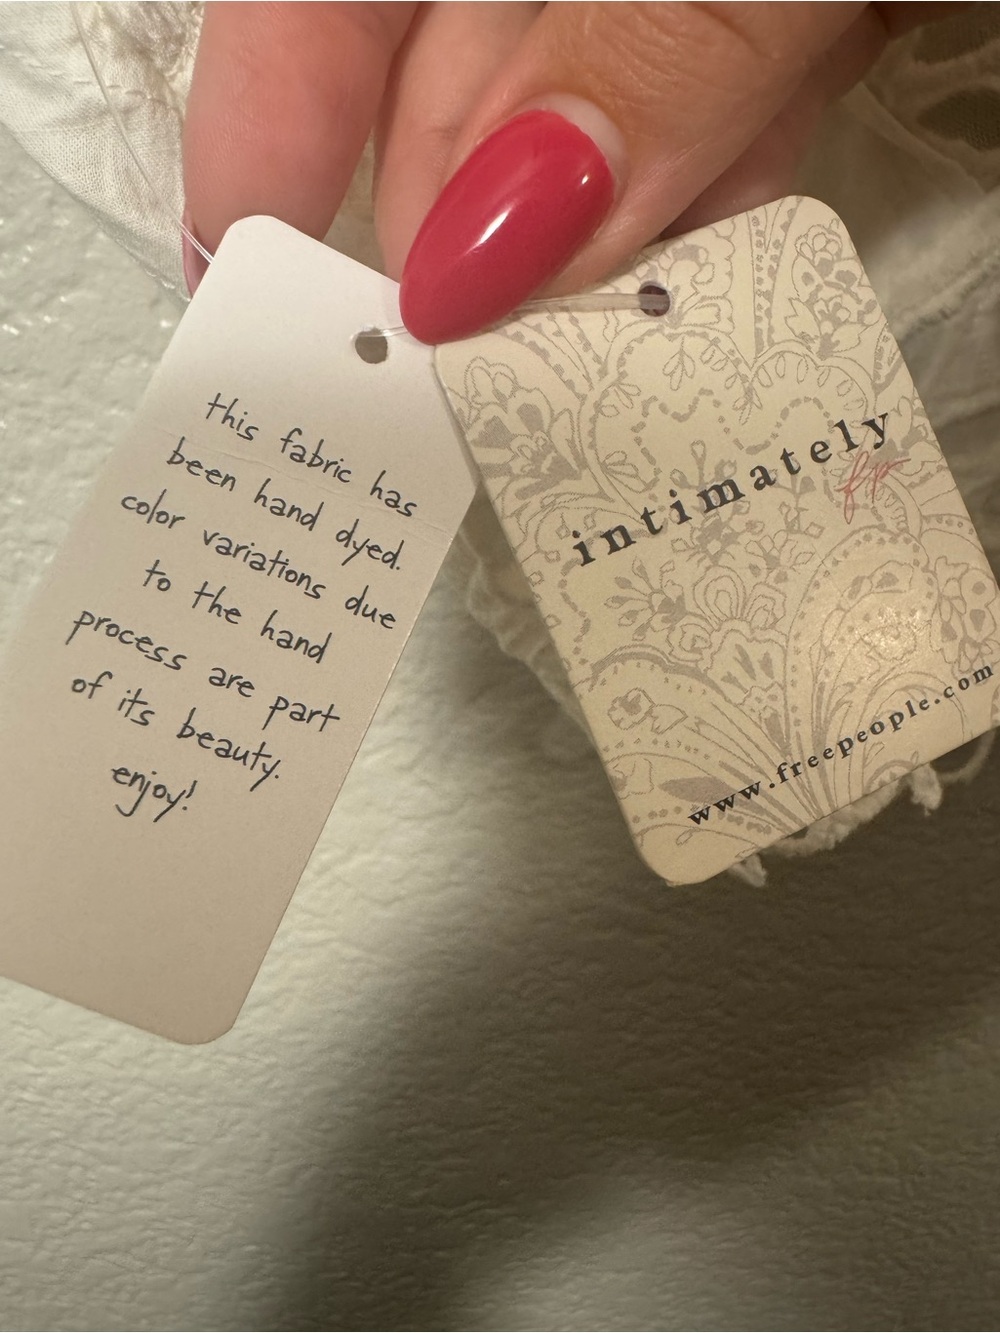 this fabric has
been hand dyed.
color variations due
to the hand
process are part
of its beauty.
enjoy!
intimately
fp
www.freepeople.com